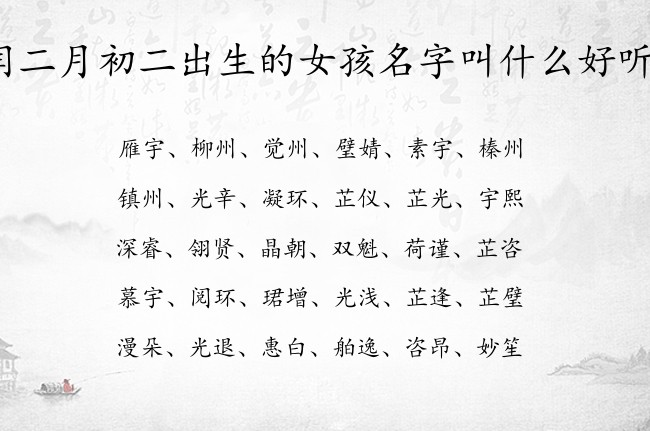 闰二月初二出生的女孩名字叫什么好听
雁宇、柳州、觉州、璧婧、素宇、榛州
镇州、光辛、凝环、芷仪、芷光、宇熙
深睿、翎贤、晶朝、双魁、荷谨、芷咨
慕宇、阅环、珺增、光浅、芷逢、芷璧
漫朵、光退、惠白、舶逸、咨昂、妙笙